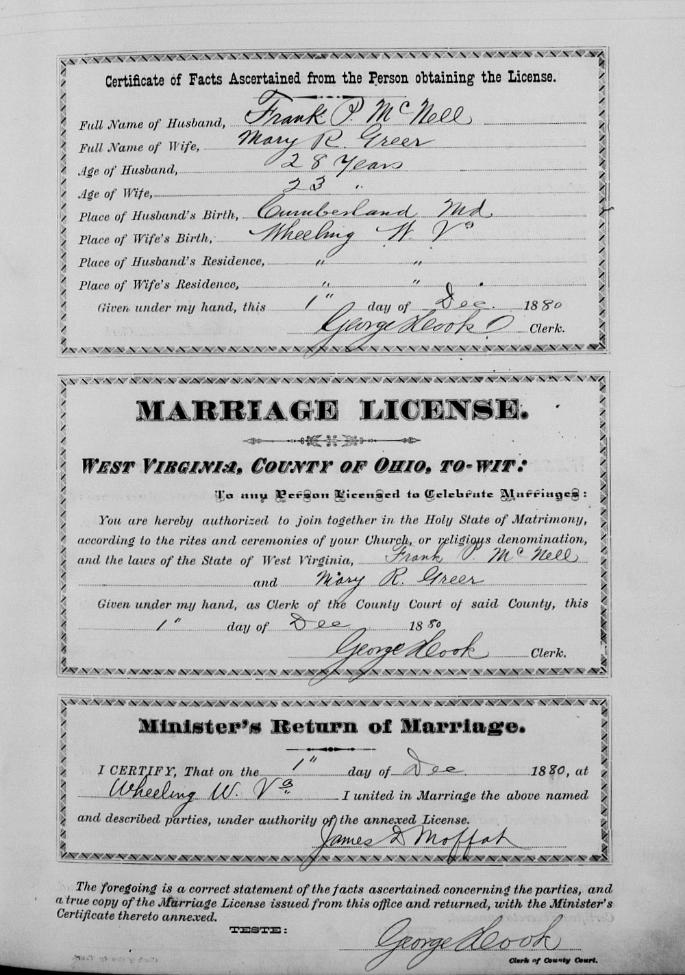 Certificate of Facts Ascertained from the Person obtaining the License.
Full Name of Husband, Frank P. McNell
Full Name of Wife, Mary R. Greer
Age of Husband, 28 Years
Age of Wife, 23 "
Place of Husband's Birth, Cumberland Md
Place of Wife's Birth, Wheeling W. Va
Place of Husband's Residence, " "
Place of Wife's Residence, " "
Given under my hand, this 1" day of Dec. 1880
George Hook Clerk.
MARRIAGE LICENSE.
WEST VIRGINIA, COUNTY OF OHIO, TO-WIT:
To any Person Licensed to Celebrate Marriages:
You are hereby authorized to join together in the Holy State of Matrimony,
according to the rites and ceremonies of your Church, or religious denomination,
and the laws of the State of West Virginia, Frank P. McNell
and Mary R. Greer
Given under my hand, as Clerk of the County Court of said County, this
1" day of Dec 1880
George Hook Clerk.
Minister's Return of Marriage.
I CERTIFY, That on the 1" day of Dec. 1880, at
Wheeling W. Va I united in Marriage the above named
and described parties, under authority of the annexed License.
James D Moffat
The foregoing is a correct statement of the facts ascertained concerning the parties, and
a true copy of the Marriage License issued from this office and returned, with the Minister's
Certificate thereto annexed.
TESTE:
George Hook
Clerk of County Court.